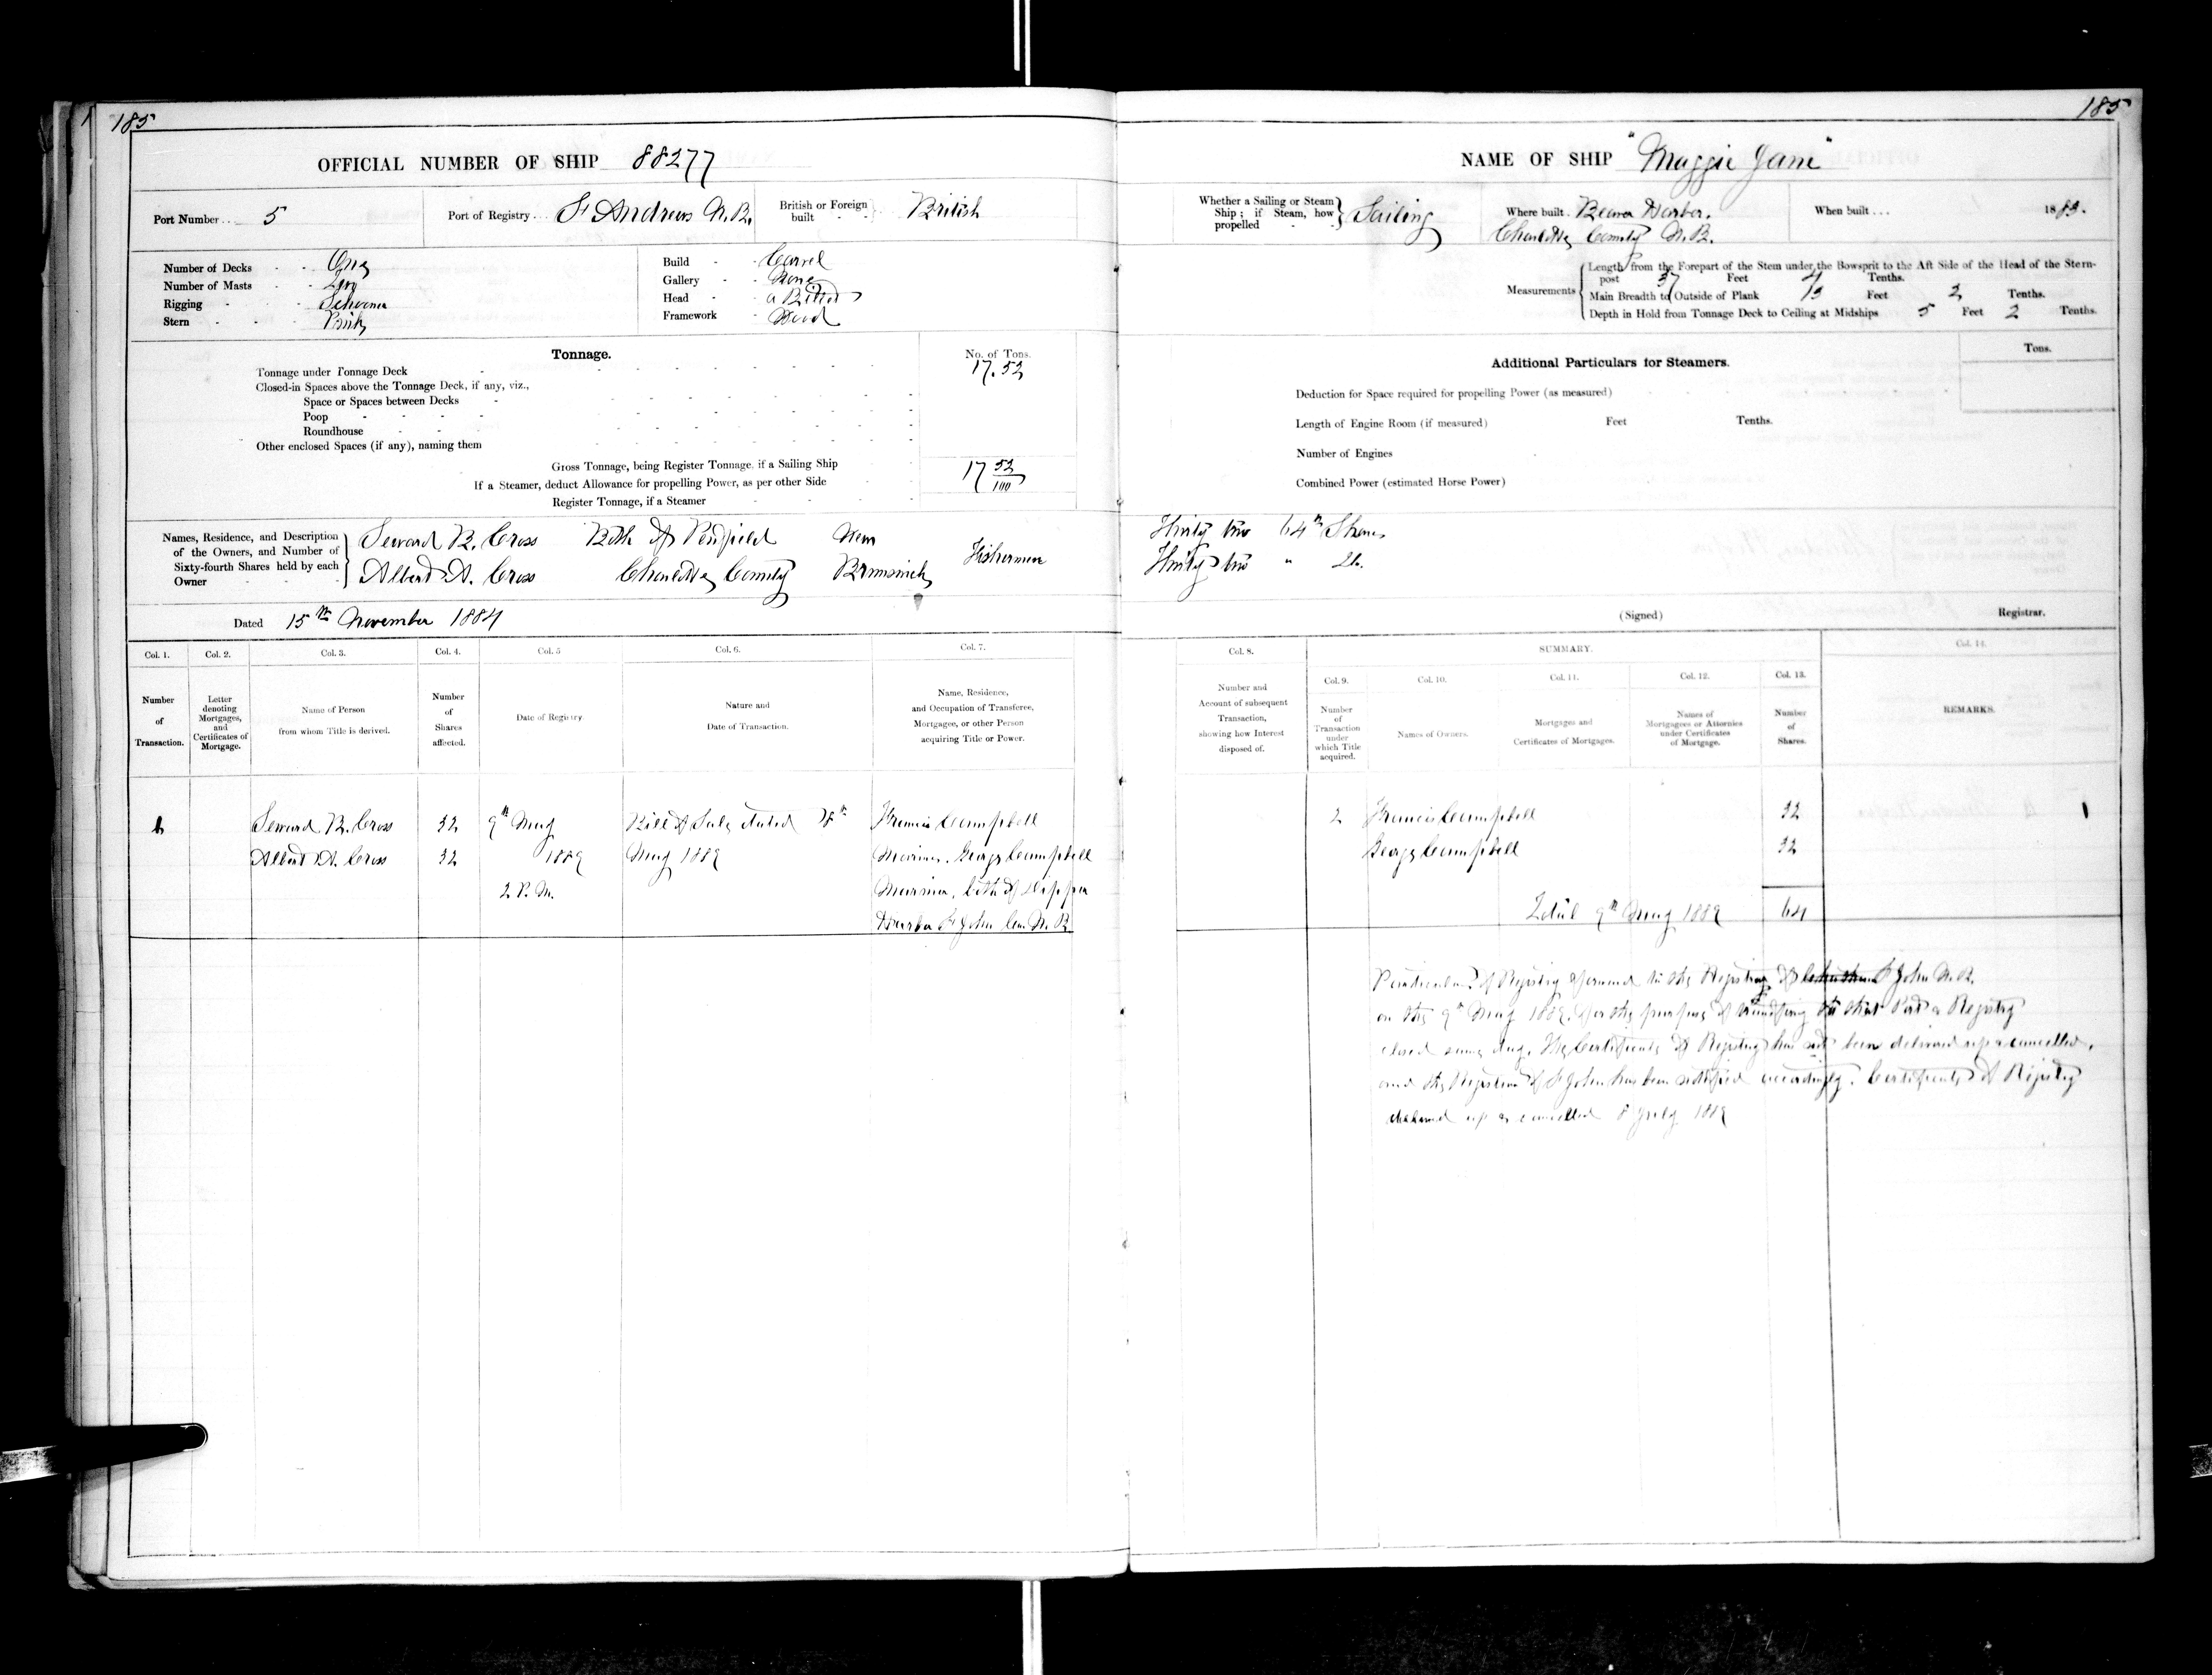 185
OFFICIAL NUMBER OF SHIP 88277
Port Number 5
Port of Registry St Andrews N.B.
British or Foreign built British
Number of Decks One
Number of Masts Two
Rigging Schooner
Stern Pink
Build Carvel
Gallery None
Head a Billet
Framework Wood
Tonnage.
No. of Tons.
Tonnage under Tonnage Deck 17.52
Closed-in Spaces above the Tonnage Deck, if any, viz.,
Space or Spaces between Decks
Poop
Roundhouse
Other enclosed Spaces (if any), naming them
Gross Tonnage, being Register Tonnage, if a Sailing Ship 17 52/100
If a Steamer, deduct Allowance for propelling Power, as per other Side
Register Tonnage, if a Steamer
Names, Residence, and Description
of the Owners, and Number of
Sixty-fourth Shares held by each
Owner
Seward B. Cross Both of Penfield New
Albert A. Cross Charlotte County Brunswick
Fishermen
Dated 15th November 1884
Col. 1. Col. 2. Col. 3. Col. 4. Col. 5 Col. 6. Col. 7.
Number of Transaction.
Letter denoting Mortgages, and Certificates of Mortgage.
Name of Person from whom Title is derived.
Number of Shares affected.
Date of Registry
Nature and Date of Transaction.
Name, Residence, and Occupation of Transferee, Mortgagee, or other Person acquiring Title or Power.
Seward B. Cross 32 9th May Bill of Sale dated 8th Francis Campbell
Albert A. Cross 32 1889 May 1889 Mariner. George Campbell
2 P.M. Mariner, both of Dipper
Harbor St John Co. N.B
185
NAME OF SHIP "Maggie Jane"
Whether a Sailing or Steam Ship; if Steam, how propelled Sailing
Where built Beaver Harbor.
Charlotte County N.B.
When built 1883.
Measurements
Length from the Forepart of the Stem under the Bowsprit to the Aft Side of the Head of the Stern-
post 37 Feet 4 Tenths.
Main Breadth to Outside of Plank 13 Feet 2 Tenths.
Depth in Hold from Tonnage Deck to Ceiling at Midships 5 Feet 2 Tenths.
Additional Particulars for Steamers.
Tons.
Deduction for Space required for propelling Power (as measured)
Length of Engine Room (if measured) Feet Tenths.
Number of Engines
Combined Power (estimated Horse Power)
Thirty two 64th Shares
Thirty two " Do.
(Signed) Registrar.
Col. 8. SUMMARY. Col. 14.
Col. 9. Col. 10. Col. 11. Col. 12. Col. 13.
Number and Account of subsequent Transaction, showing how Interest disposed of.
Number of Transaction under which Title acquired.
Names of Owners.
Mortgages and Certificates of Mortgages.
Names of Mortgagees or Attornies under Certificates of Mortgage.
Number of Shares.
REMARKS.
2 Francis Campbell 32
George Campbell 32
Total 9th May 1889 64
Particulars of Registry forward to the Registrar of St John N.B.
on the 9th May 1889. for the purpose of transfering to that Port & Registry
closed same day. The Certificate of Registry has not been delivered up & cancelled,
and the Registrar of St John has been notified accordingly. Certificate of Registry
delivered up & cancelled 8 July 1889